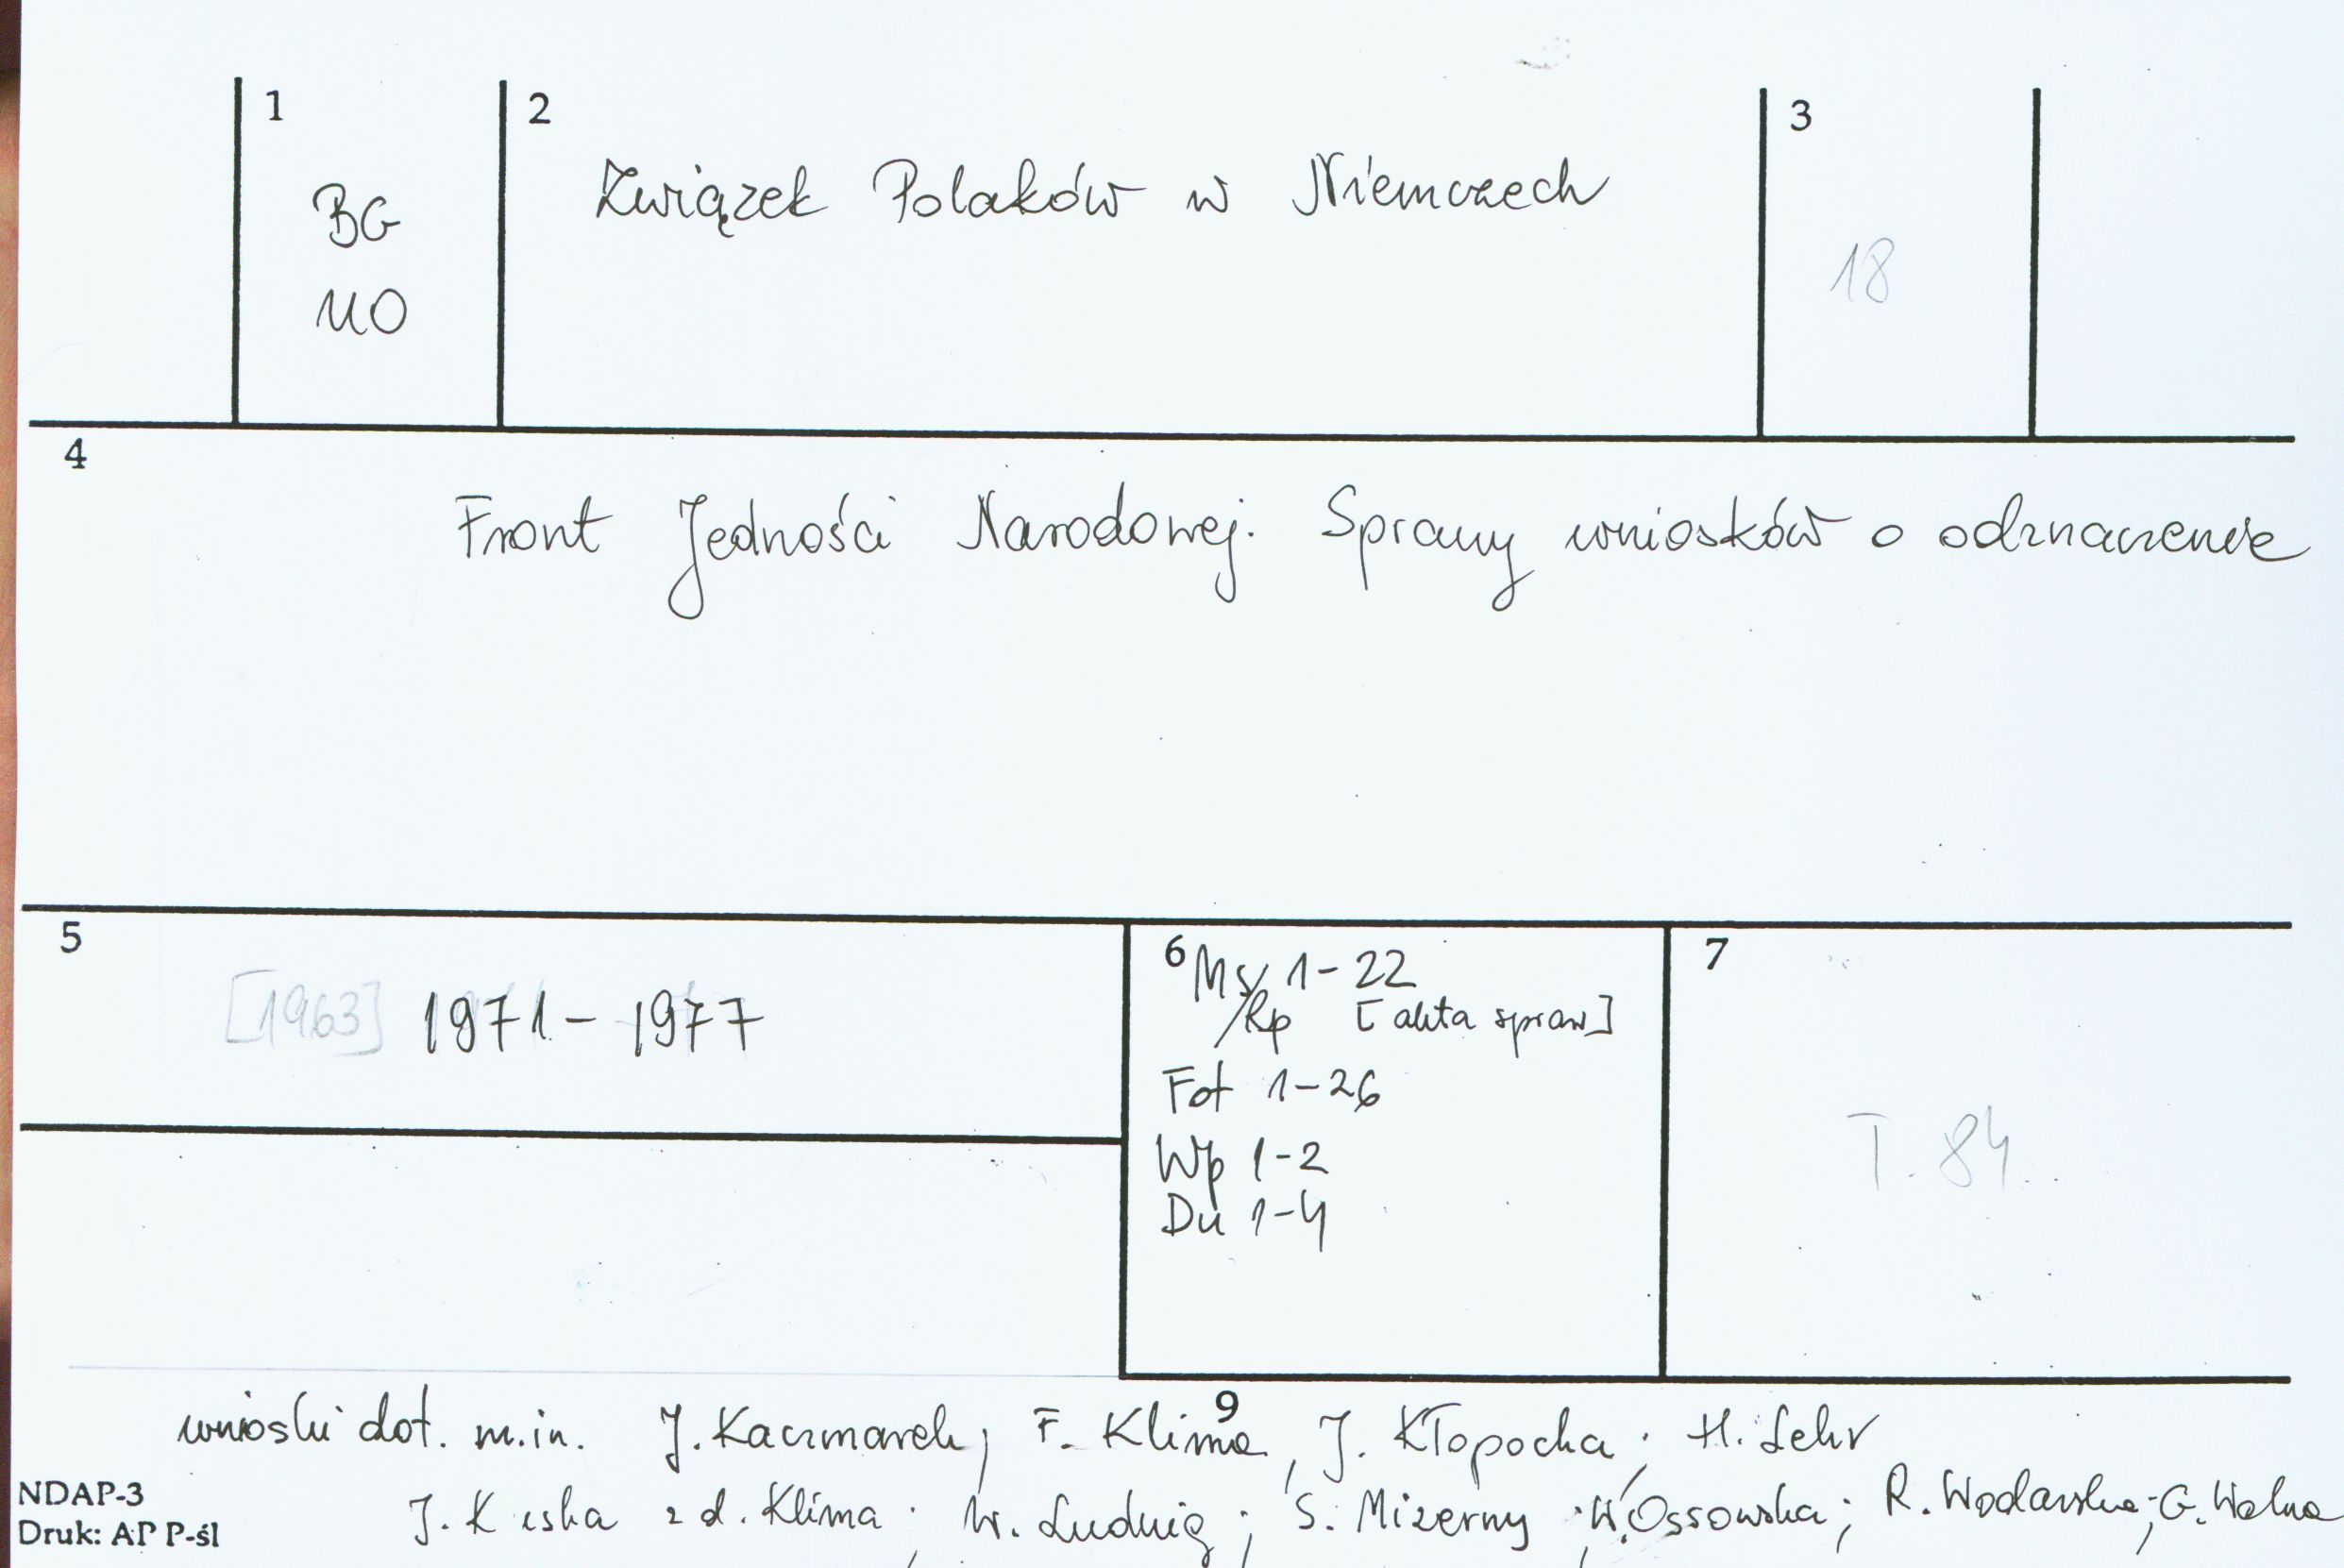 1
2
3
BG
UO
Związek Polaków w Niemczech
18
4
Front Jedności Narodowej. Sprawy wniosków o odznaczenie
5
[1963] 1971-1977
6
Ms 1-22
/Rp [akta spraw]
Fot 1-26
Wp 1-2
Du 1-4
7
T. 84
9
wnioski dot. m.in. J. Kaczmarek, F. Klima, J. Kłopocka; H. Lehr
J. K z d. Klima; W. Ludwig; S. Mizerny; W. Ossowska; R. Wodarska; G. Wolna
NDAP-3
Druk: AP P-śl